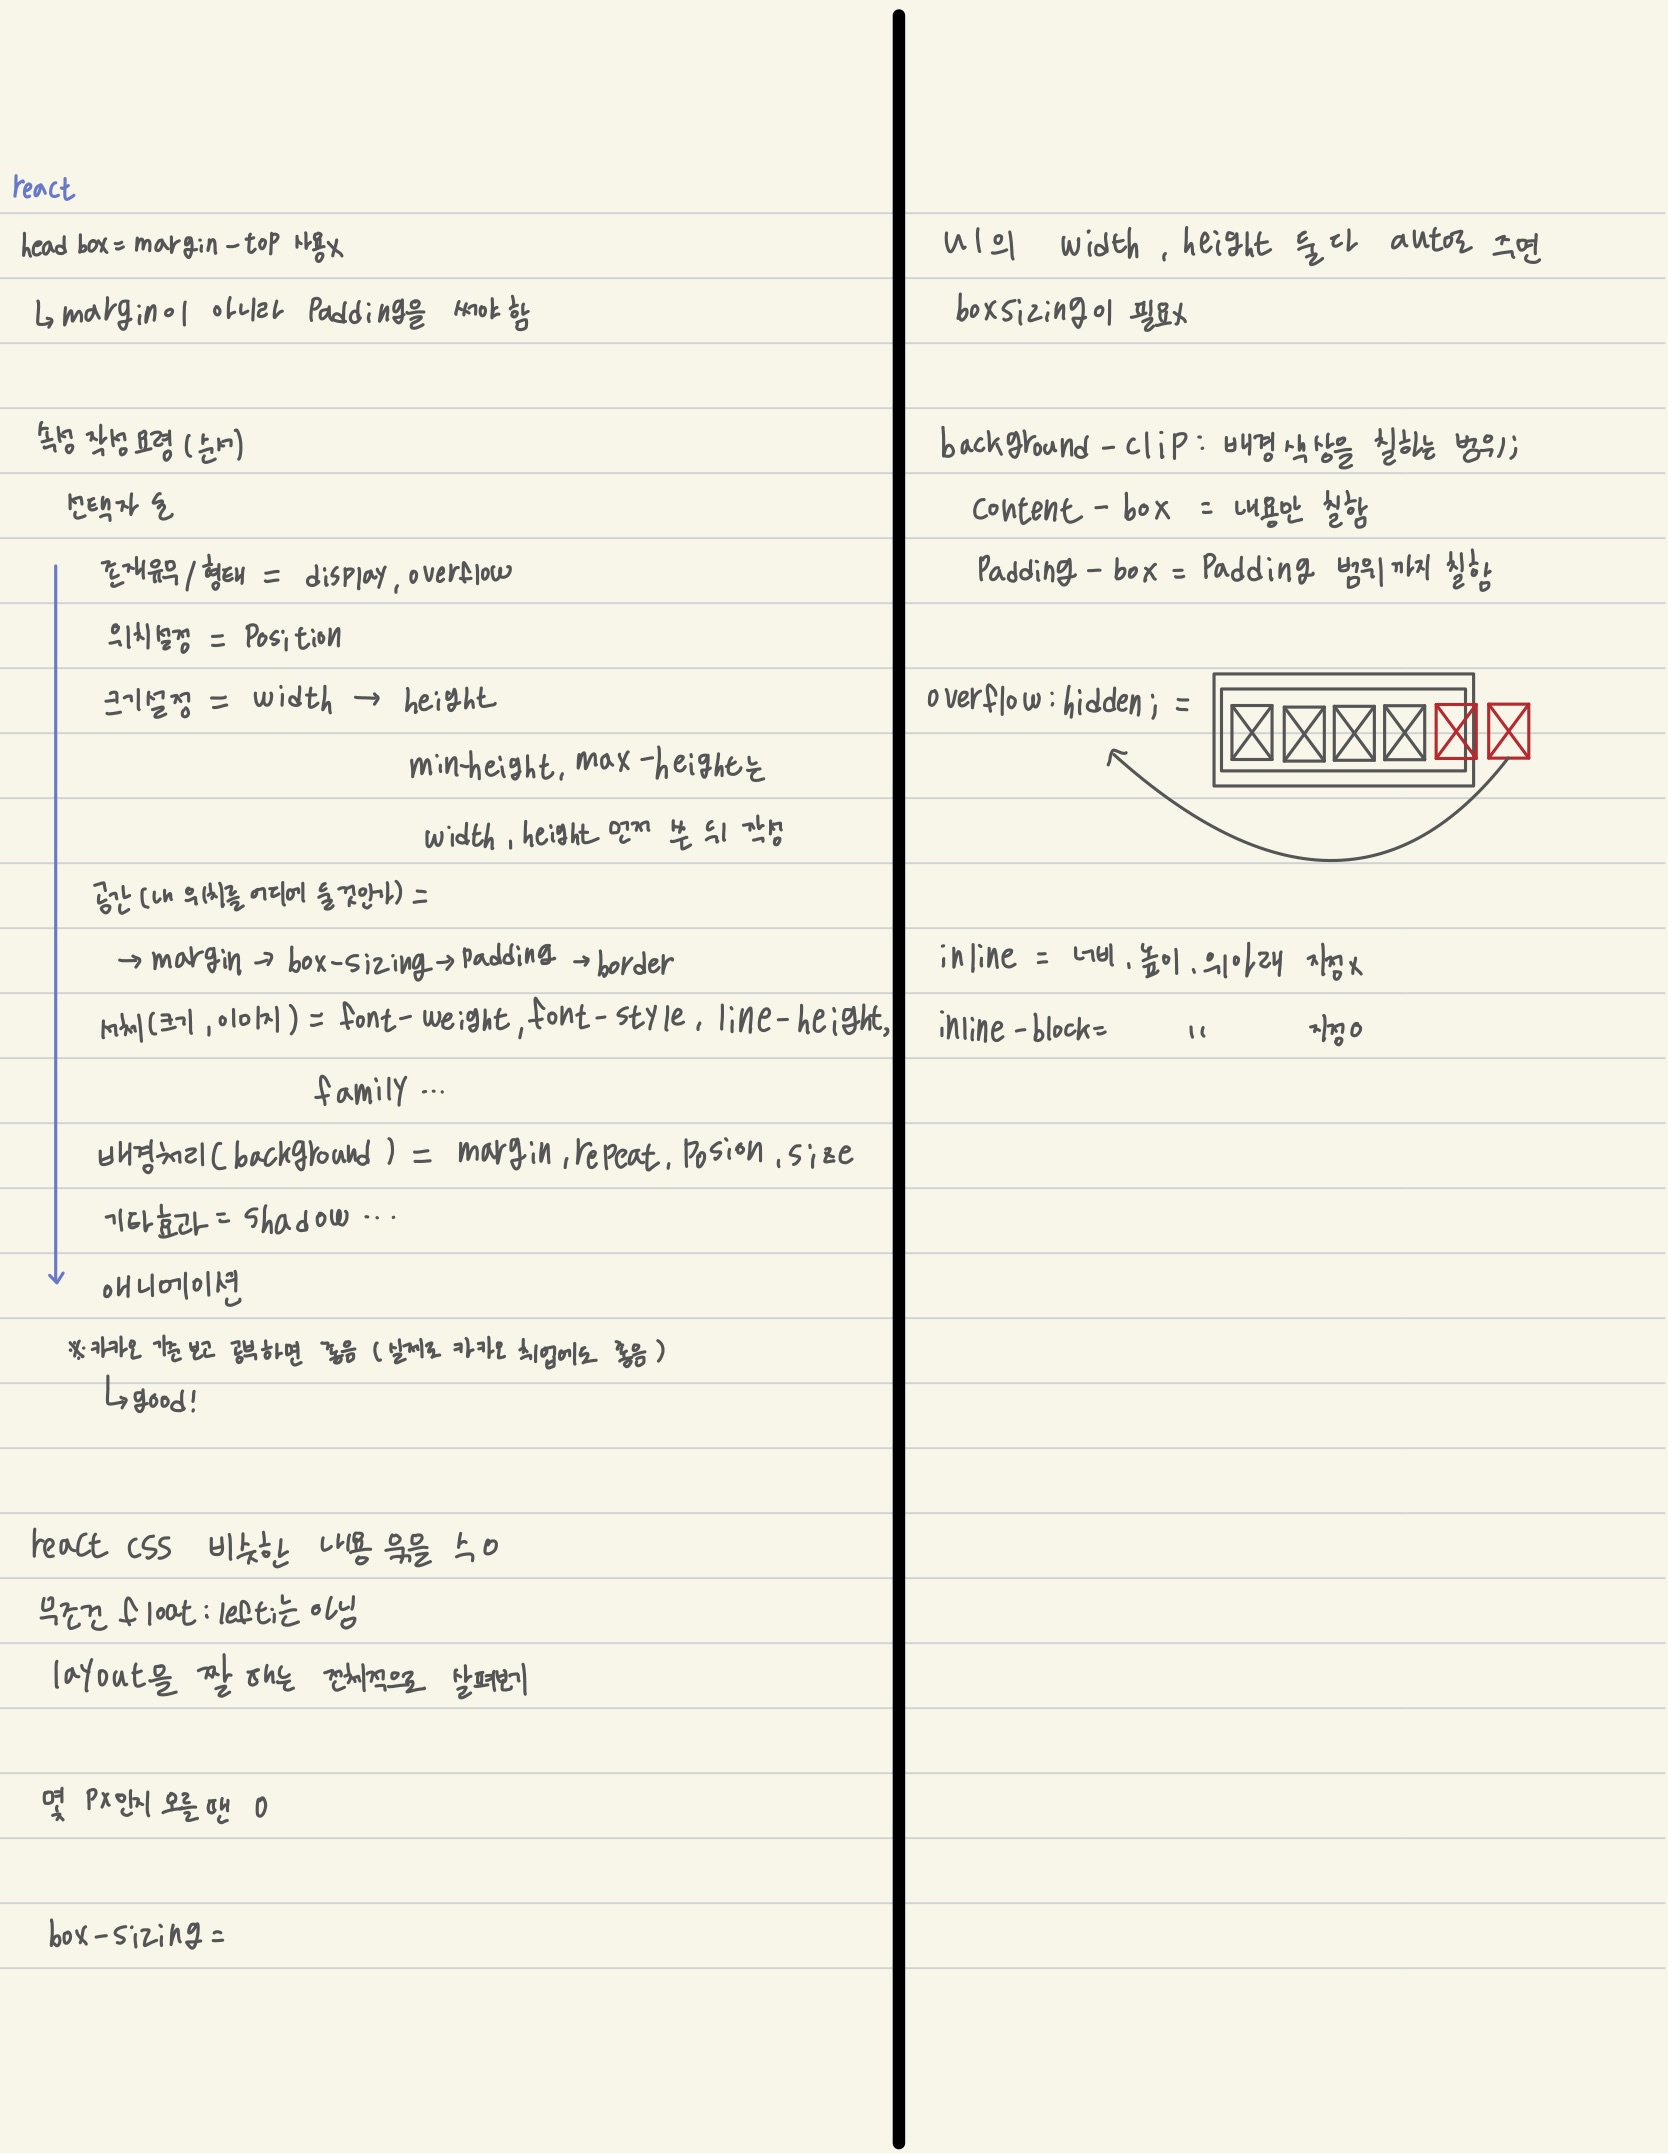 react
head box = margin-top 사용x
↳ margin이 아니라 Padding을 써야 함
속성 작성 요령 (순서)
선택자 순
존재유무/형태 = display, overflow
위치설정 = Position
크기설정 = width → height
min-height, max-height는
width, height 먼저 쓴 뒤 작성
공간 (내 위치를 어디에 둘것인가) =
→ margin → box-sizing → padding → border
서체(크기, 이미지) = font-weight, font-style, line-height,
family ...
배경처리(background) = margin, repeat, Posion, size
기타효과 = shadow ...
애니메이션
※카카오 기준 보고 공부하면 좋음 (실제로 카카오 취업에도 좋음)
↳ good!
react css 비슷한 내용 묶을 수 o
무조건 float: left;는 아님
layout을 짤 때는 전체적으로 살펴보기
몇 Px인지 모를 땐 0
box-sizing =
ul의 width, height 둘 다 auto로 주면
boxsizing이 필요x
background-cliP: 배경 색상을 칠하는 범위;
Content-box = 내용만 칠함
Padding-box = Padding 범위까지 칠함
overflow: hidden; =
inline = 너비, 높이, 위아래 지정x
inline-block = " 지정o